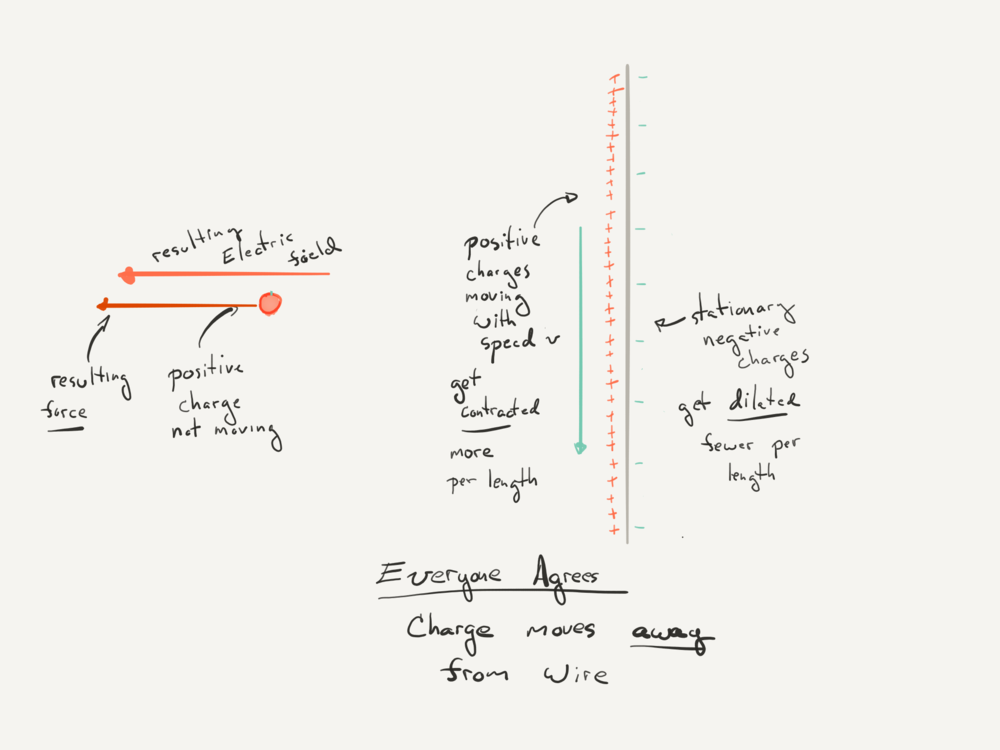 resulting
Electric
field
resulting
force
positive
charge
not moving
positive
charges
moving
with
speed v
get
contracted
more
per length
stationary
negative
charges
get dilated
fewer per
length
Everyone Agrees
Charge moves away
from wire